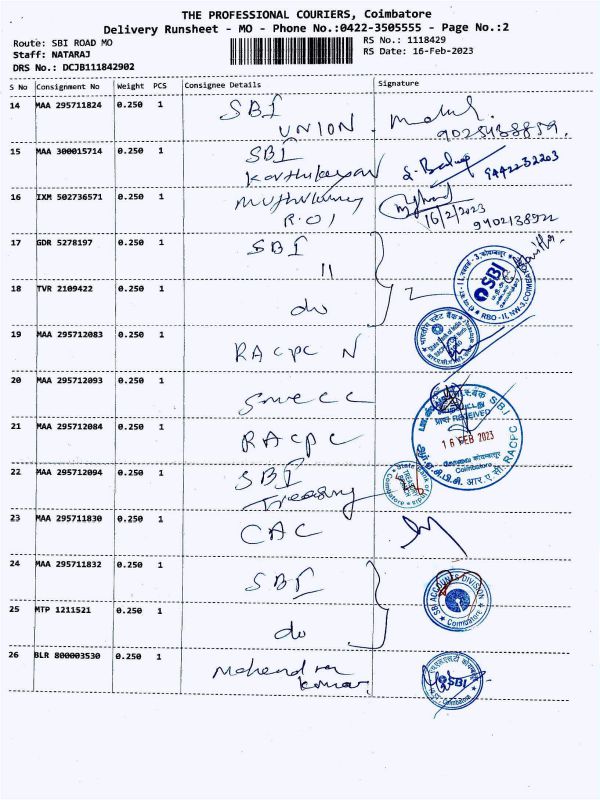 THE PROFESSIONAL COURIERS, Coimbatore
Delivery Runsheet - MO - Phone No.:0422-3505555 - Page No.:2
Route: SBI ROAD MO
RS No.: 1118429
Staff: NATARAJ
RS Date: 16-Feb-2023
DRS No.: DCJB111842902
S No Consignment No Weight PCS Consignee Details Signature
14 MAA 295711824 0.250 1 SBI
UNION
15 MAA 300015714 0.250 1 SBI
9442232203
16 IXM 502736571 0.250 1
R.O1 16/2/2023
17 GDR 5278197 0.250 1 SBI
II
18 TVR 2109422 0.250 1 do
SBI
RBO - II, NW-3, COIMBATORE
19 MAA 295712083 0.250 1 RACPC N
20 MAA 295712093 0.250 1 SMECC
RECEIVED
16 FEB 2023
Coimbatore
SBI RACPC
21 MAA 295712084 0.250 1 RACPC
22 MAA 295712094 0.250 1 SBI
Treasury
State Bank of India
Coimbatore
23 MAA 295711830 0.250 1 CAC
24 MAA 295711832 0.250 1 SBI
SBI ACCOUNTS DIVISION
Coimbatore
25 MTP 1211521 0.250 1 do
26 BLR 800003530 0.250 1 Mahendran
Kumar
SBI
Coimbatore